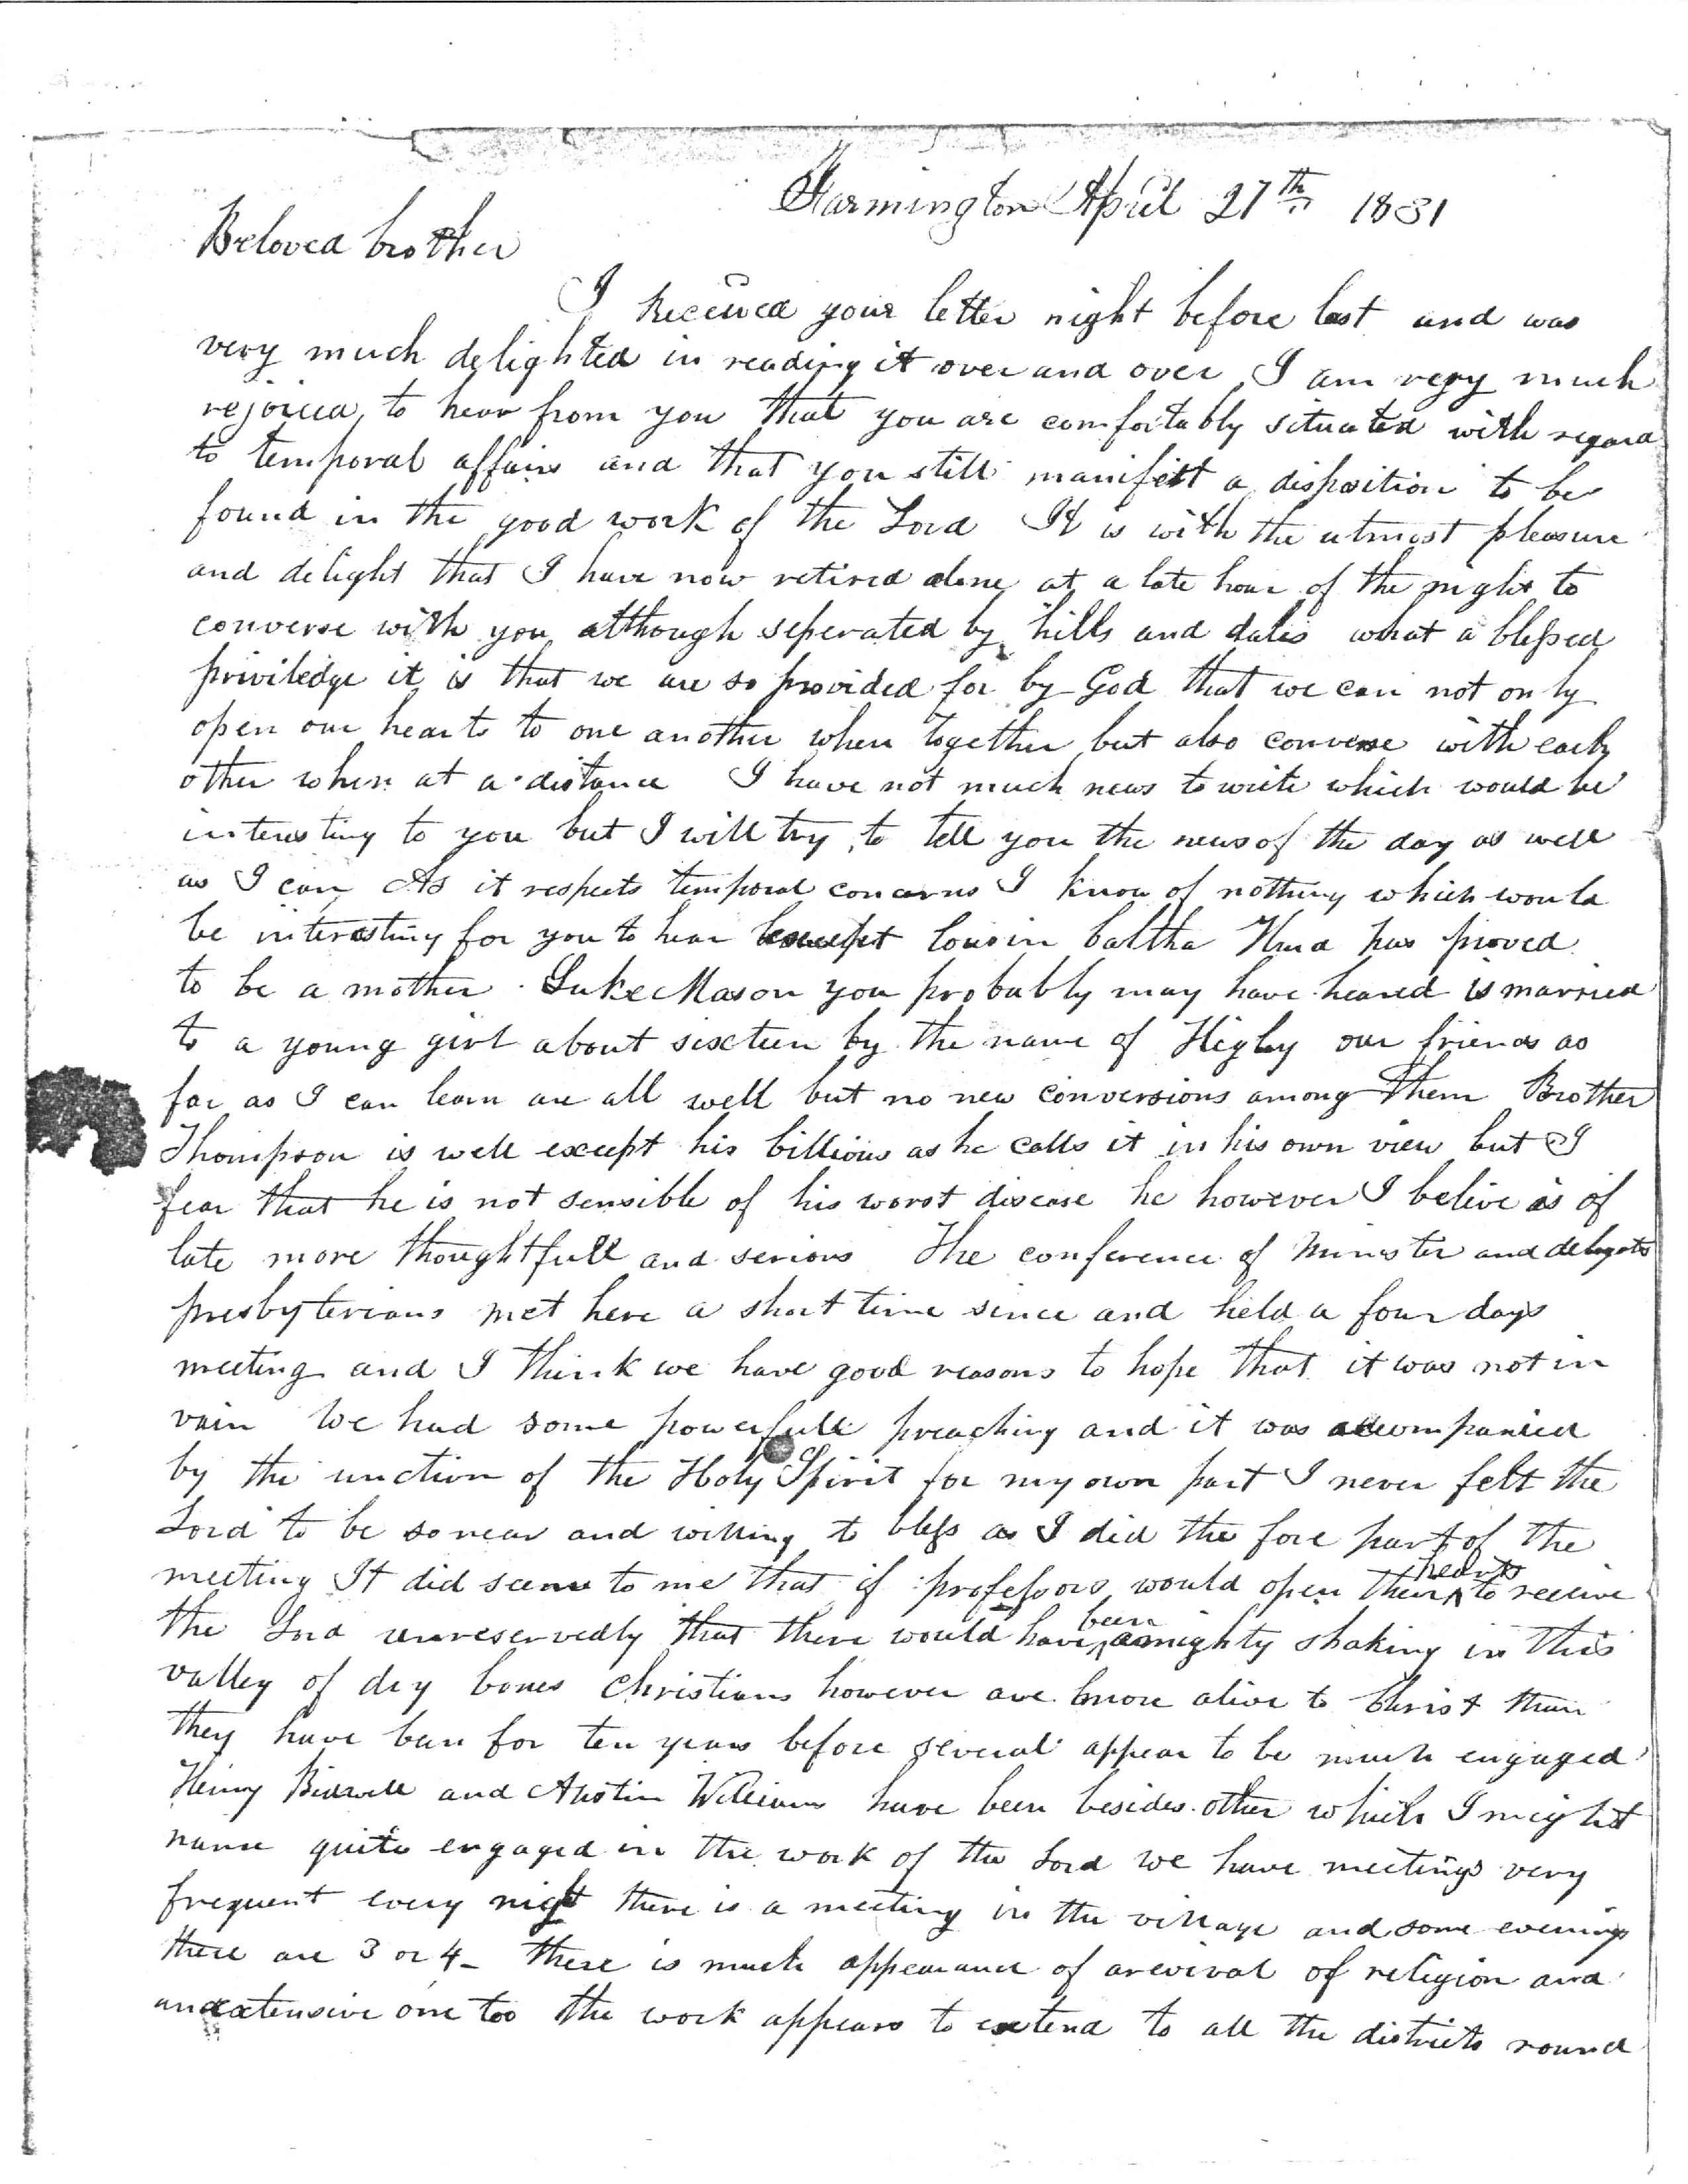 Farmington April 27th 1831
Beloved brother
I Received your letter night before last and was
very much delighted in reading it over and over I am very much
rejoiced, to hear from you that you are comfortably situated with regard
to temporal affairs and that you still manifest a disposition to be
found in the good work of the Lord It is with the utmost pleasure
and delight that I have now retired alone at a late hour of the night to
converse with you although seperated by hills and dales what a blessed
priviledge it is that we are so provided for by God that we can not only
open our hearts to one another when together but also converse with each
other when at a distance I have not much news to write which would be
interesting to you but I will try to tell you the news of the day as well
as I can As it respects temporal concerns I know of nothing which would
be interesting for you to hear except Cousin Hurd has proved
to be a mother. Luke Mason you probably may have heared is married
to a young girl about sixteen by the name of Higby our friends as
far as I can learn are all well but no new conversions among them Brother
Thompson is well except his billious as he calls it in his own view but I
fear that he is not sensible of his worst disease he however I belive is of
late more thoughtfull and serious The conference of Minister and delegats
presbyterians met here a short time since and held a four days
meeting and I think we have good reasons to hope that it was not in
vain We had some powerfull preaching and it was accompanied
by the unction of the Holy Spirit for my own part I never felt the
Lord to be so near and willing to bless as I did the fore part of the
meeting It did seem to me that if professors would open their hearts to receive
the Lord unreservedly that there would have been a mighty shaking in this
valley of dry bones Christians however are more alive to Christ than
they have ben for ten years before several appear to be much engaged
Henry Bidwell and Austin Williams have been besides other which I might
name quite engaged in the work of the Lord we have meetings very
frequent every night there is a meeting in the village and some evenings
there are 3 or 4 - there is much appearance of a revival of religion and
an extensive one too the work appears to extend to all the districts round